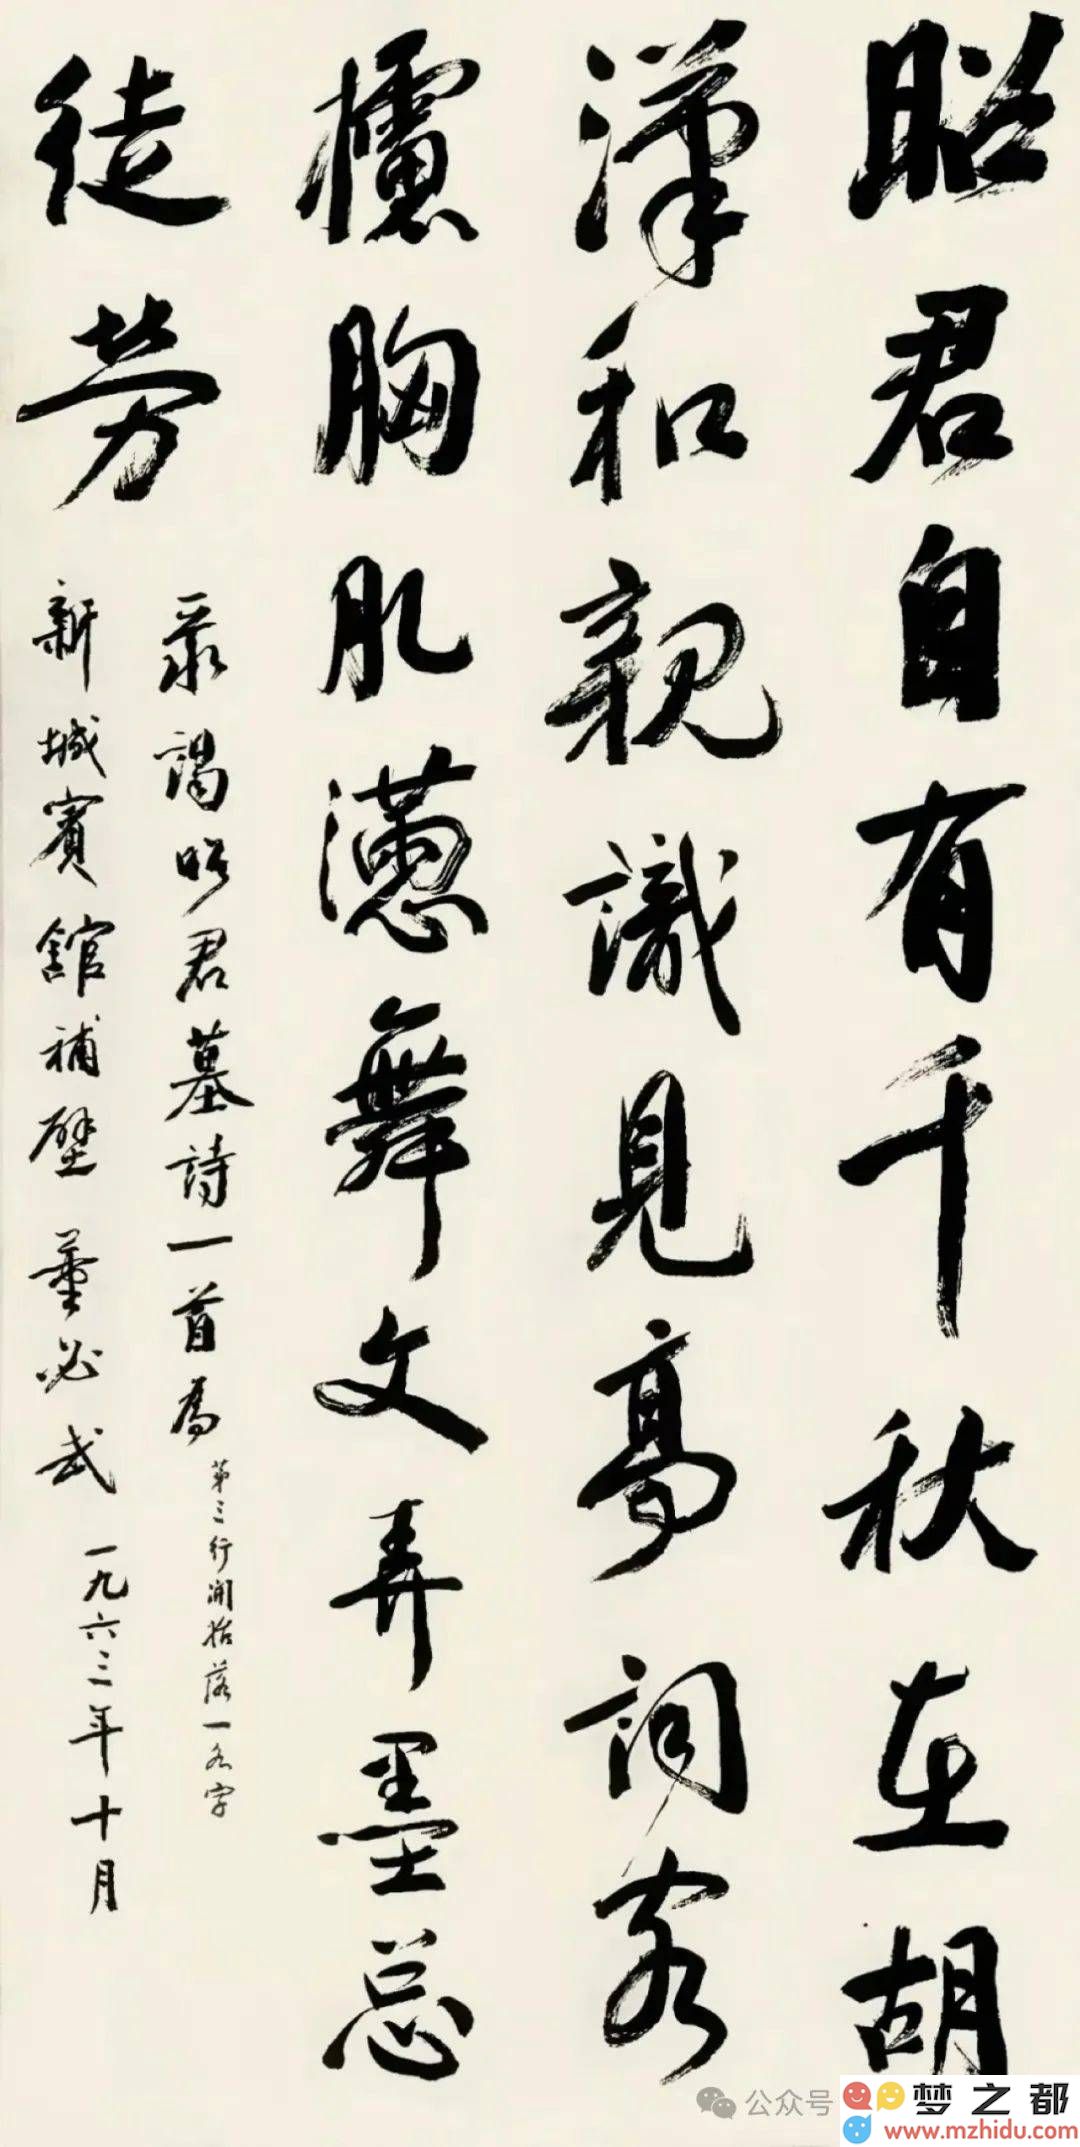 昭君自有千秋在胡
漢和親識見高詞客
攄胸肊懣舞文弄墨总
徒劳
录謁昭君墓詩一首為
第三行開始落一各字
新城賓館補壁 董必武 一九六三年十月
公众号
梦之都
www.mzhidu.com